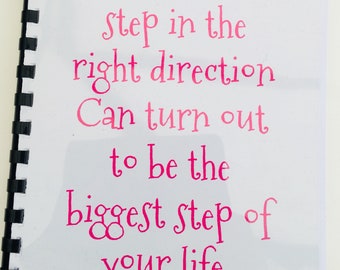 step in the
right direction
Can turn out
to be the
biggest step of
your life